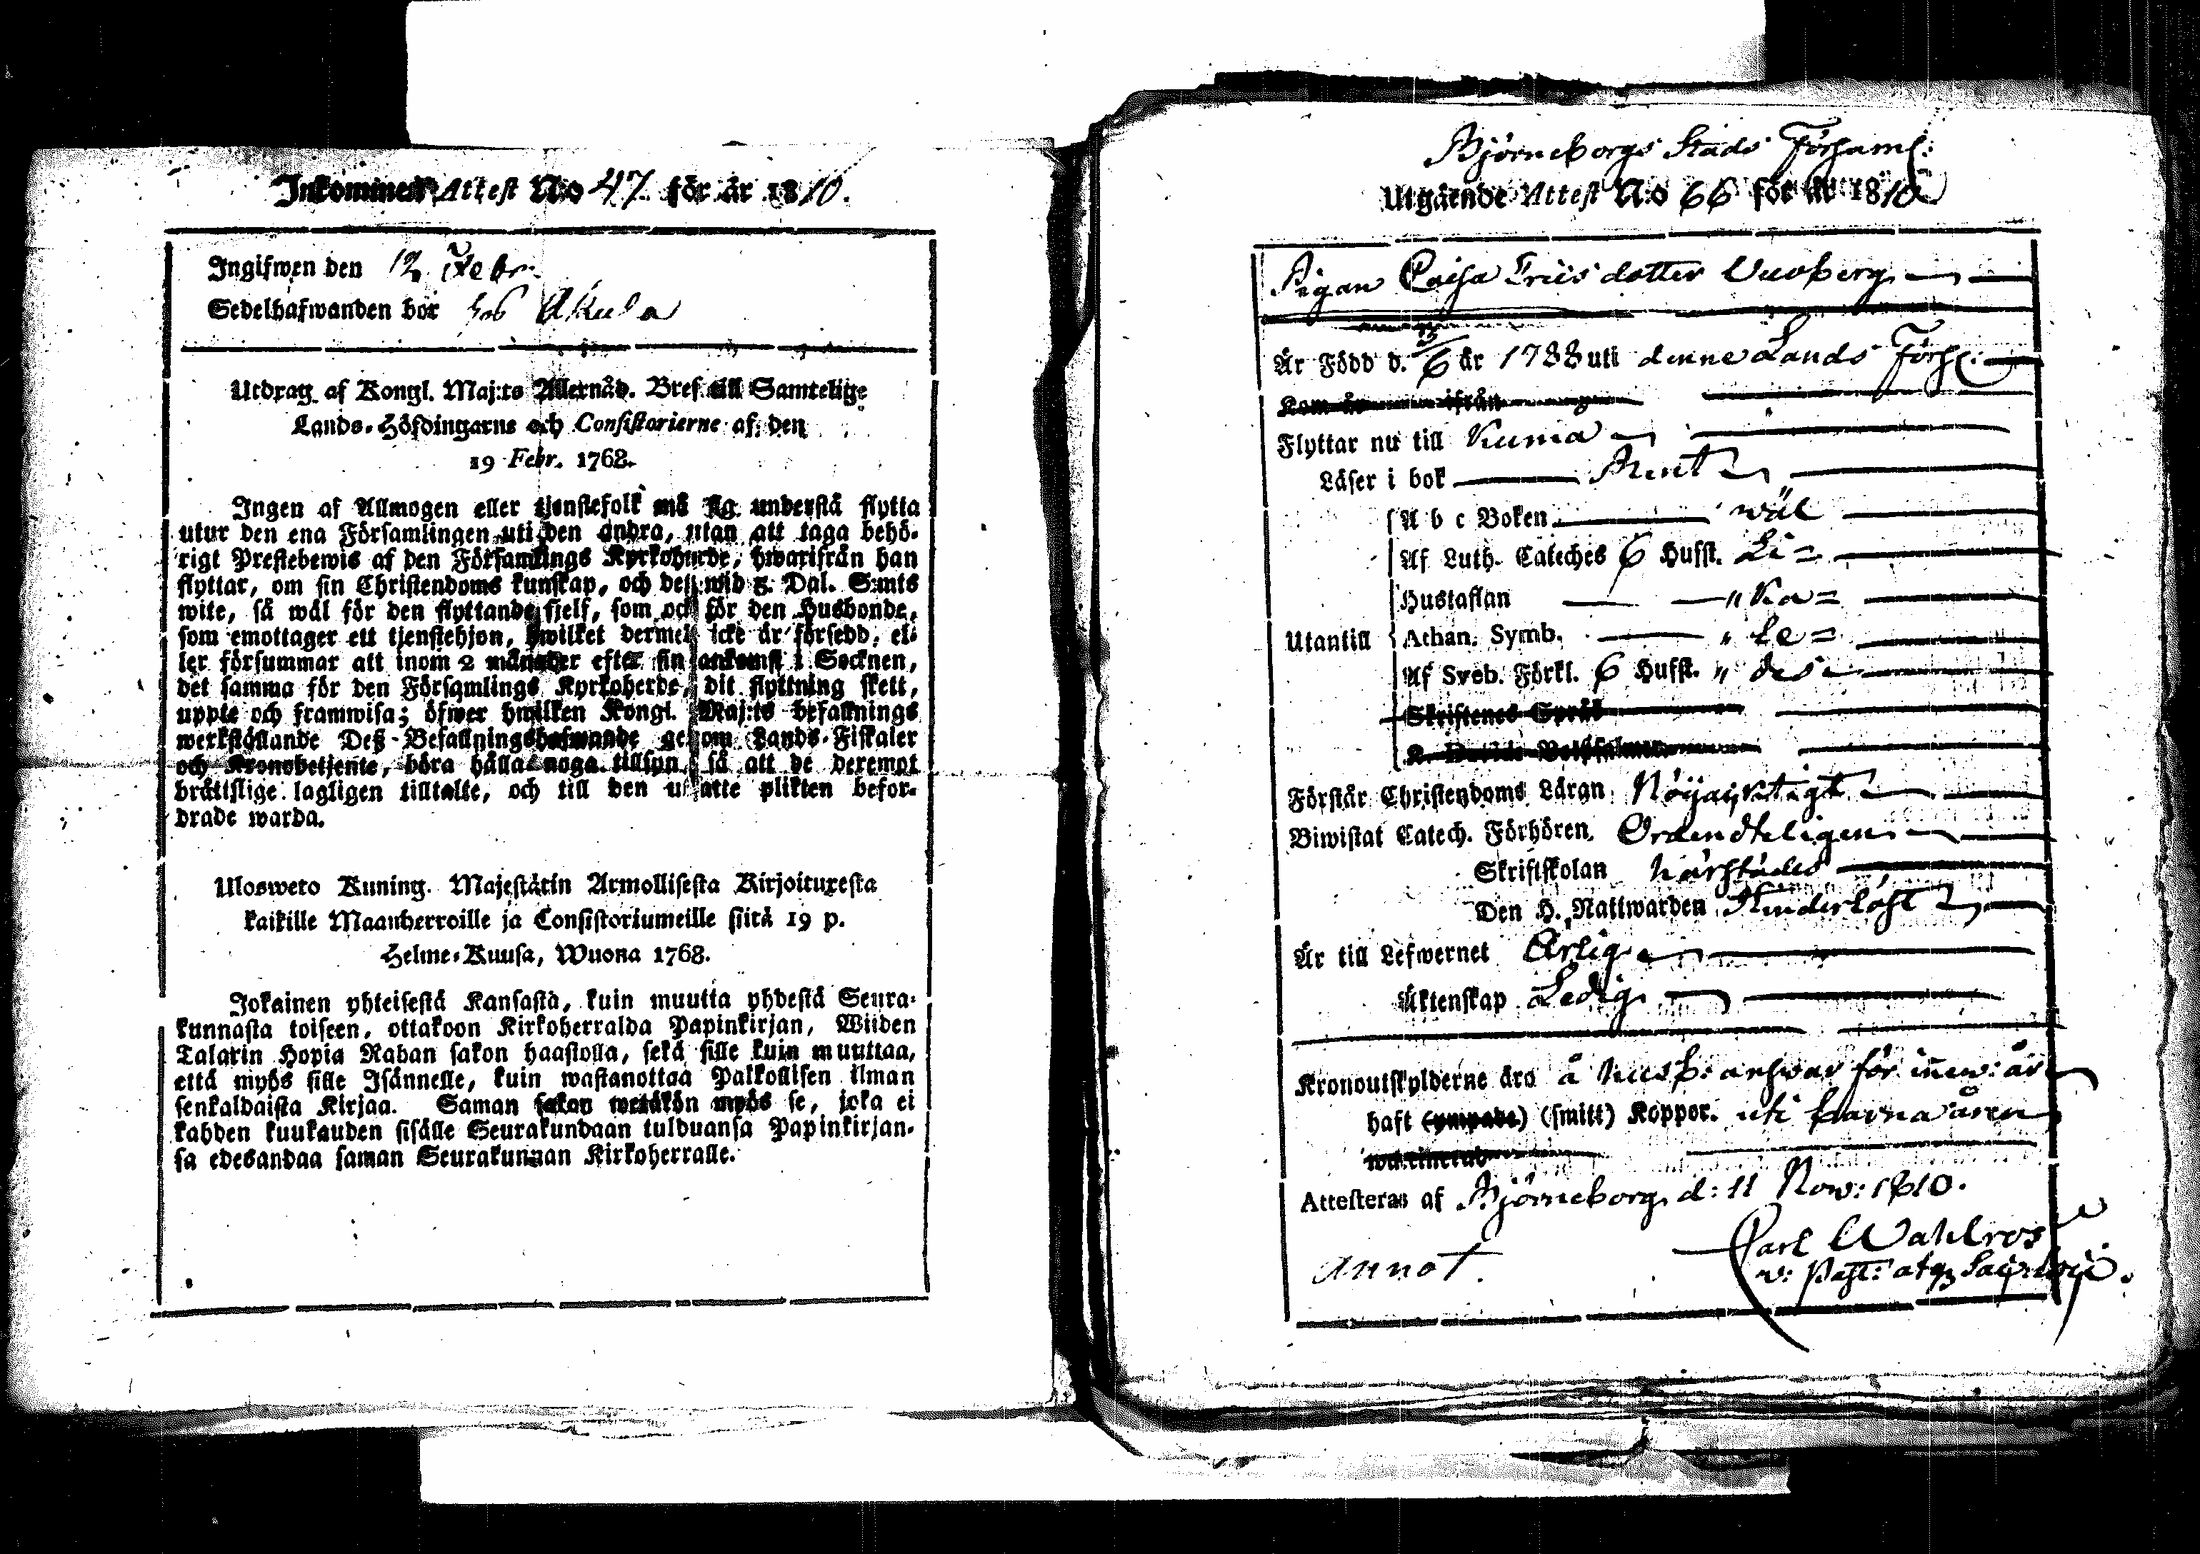 Inkommen Attest No 47 för år 1810.
Ingifwen den 12 Febr.
Sedelhafwanden bor hos Akula
Utdrag af Kongl. Maj:ts Allernåd. Bref till Samtelige
Lands-Höfdingarne och Consistorierne af den
19 Febr. 1768.
Ingen af Allmogen eller tjenstefolk må sig understå flytta
utur den ena Församlingen uti den andra, utan att taga behö-
rigt Prestebewis af den Församlings Kyrkoherde, hwarifrån han
flyttar, om sin Christendoms kunskap, och det wid 5 Dal. S:mts
wite, så wäl för den flyttande sjelf, som ock för den Husbonde,
som emottager ett tjenstehjon, hwilket dermed icke är försedd, el-
ler försummar att inom 2 månader efter sin ankomst i Socknen,
det samma för den Församlings Kyrkoherde, dit flyttning skett,
uppte och framwisa; öfwer hwilken Kongl. Maj:ts befallnings
werkställande Deß Befallningshafwande genom Lands-Fiskaler
och Kronobetjente, böra hålla noga tillsyn, så att de deremot
bråtislige lagligen tilltalte, och till den utsatte plikten befor-
drade warda.
Ulosweto Kuning. Majestätin Armollisesta Kirjoituxesta
kaikille Maanherroille ja Consistoriumeille siitä 19 p.
Helme-Kuusa, Wuona 1768.
Jokainen yhteisestä Kansasta, kuin muutta yhdestä Seura-
kunnasta toiseen, ottakoon Kirkoherralda Papinkirjan, Wiiden
Talarin Hopia Rahan sakon haastolla, sekä sille kuin muuttaa,
että myös sille Isännelle, kuin wastanottaa Palkollisen ilman
senkaldaista Kirjaa. Saman sakon wetäkön myös se, joka ei
kahden kuukauden sisälle Seurakundaan tulduansa Papinkirjan-
sa edesandaa saman Seurakunnan Kirkoherralle.
Björneborgs Stads Församl:
Utgående Attest No 66 för år 1810
Pigan Caisa Friisdotter Vuoberg
Är Född d. 25/6 år 1788 uti denne Lands Förs:
Kom år ifrån
Flyttar nu till Kumo
Läser i bok Rent
A b c Boken wäl
Af Luth. Cateches 6 Hufst. Li=
Hustaflan " ka=
Utantill Athan. Symb. " le=
Af Sveb. Förkl. 6 Hufst. " des
Skriftenes Språk
Förstår Christendoms Läran Nöijagtigt
Biwistat Catech. Förhören Ordendteligen
Skriftskolan härstädes
Den H. Nattwarden Hinderlöst
Är till Lefwernet Ärlig
Äktenskap Ledig
Kronoutskylderne äro å husb: answar för innew: år
haft (ympade) (smitt) Koppor. uti barna åren
Attesteras af Björneborg d: 11 Nov: 1810.
Carl Wahlroos
Annot.